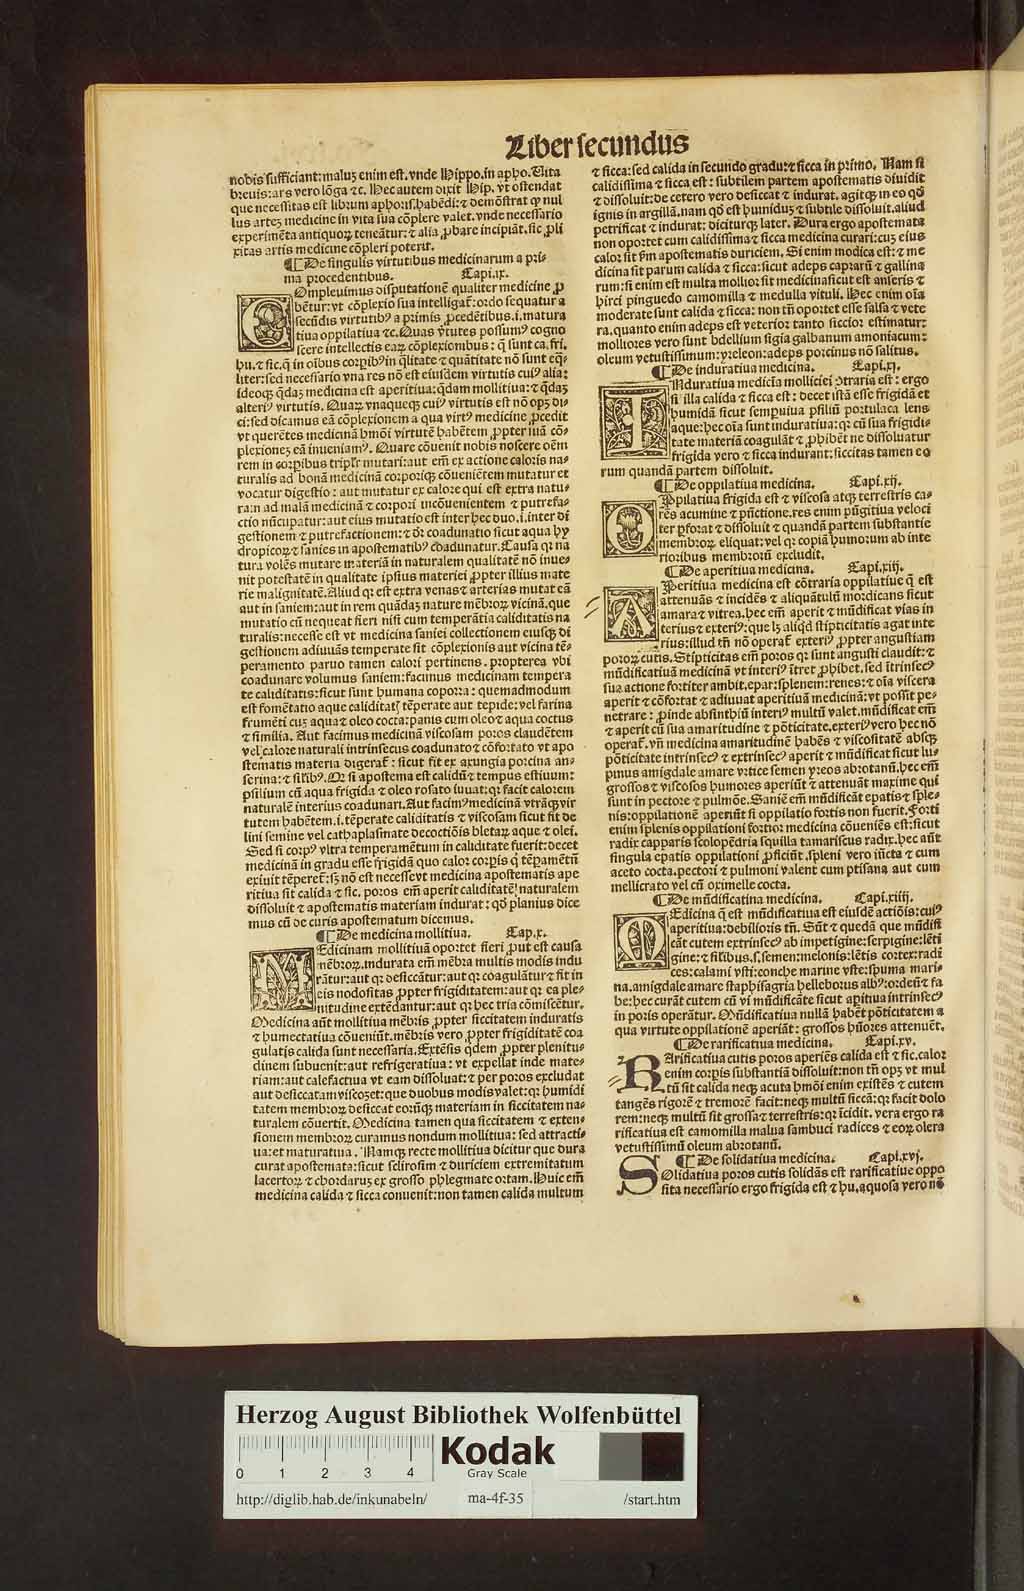 Liber secundus
nobis sufficiant: maluʒ enim est. vnde Hippo. in apho. Uita
breuis: ars vero lōga ⁊c. Hec autem dixit Hip. vt ostendat
que necessitas est librum aphoris. habēdi: ⁊ demōstrat ꝙ nul
lus arteʒ medicine in vita sua cōplere valet. vnde necessario
experimēta antiquoꝝ teneātur: ⁊ alia ꝓbare incipiāt. sic ꝓli
xitas artis medicine cōpleri poterit.
¶ De singulis virtutibus medicinarum a pri-
ma procedentibus. Capi.ix.
COmpleuimus disputationē qualiter medicine ꝓ
bētur: vt cōplexio sua intelligat᷒: ordo sequatur a
secūdis virtutibꝰ a primis ꝓcedētibus .i. matura
tiua oppilatiua ⁊c. Quas v̓tutes possumꝰ cogno
scere intellectis eaꝝ cōplexionibus: q̄ sunt ca. fri.
hu. ⁊ sic. q̄ in oībus corꝑibꝰ in q̄litate ⁊ quātitate nō sunt eq̄-
liter: sed necessario vna res nō est eiusdem virtutis cuiꝰ alia:
ideoqꝫ q̄daʒ medicina est aperitiua: q̄dam mollitiua: ⁊ q̄daʒ
alteriꝰ virtutis. Quaꝝ vnaqueqꝫ cuiꝰ virtutis est nō opʒ di-
ci: sed dicamus eā cōplexionem a qua virtꝰ medicine ꝓcedit
vt querētes medicinā hmōi virtutē habētem ꝓpter suā cō-
plexioneʒ eā inueniamꝰ. Quare cōuenit nobis noscere oēm
rem in corꝑibus tripl'r mutari: aut em̄ ex actione caloris na-
turalis ad bonā medicinā corporiqꝫ cōuenientem mutatur et
vocatur digestio: aut mutatur ex calore qui est extra natu-
ram ad malā medicinā ⁊ corpori incōuenientem ⁊ putrefa-
ctio nūcupatur: aut eius mutatio est inter hec duo .i. inter di
gestionem ⁊ putrefactionem: ⁊ dr̄ coadunatio sicut aqua hy
dropicoꝝ ⁊ sanies in apostematibꝰ coadunatur. Causa qꝛ na
tura volēs mutare materiā in naturalem qualitatē nō inue-
nit potestatē in qualitate ipsius materiei ꝓpter illius mate
rie malignitatē. Aliud qꝛ est extra venas ⁊ arterias mutat eā
aut in saniem: aut in rem quādaʒ nature mēbroꝝ vicinā. que
mutatio cū nequeat fieri nisi cum temperātia caliditatis na
turalis: necesse est vt medicina saniei collectionem eiusqꝫ di
gestionem adiuuās temperate sit cōplexionis aut vicina tē-
peramento paruo tamen calori pertinens. propterea vbi
coadunare volumus saniem: facimus medicinam tempera
te caliditatis: sicut sunt humana corpora: quemadmodum
est fomētatio aque caliditat᷒ tēperate aut tepide: vel farina
frumēti cuʒ aqua ⁊ oleo cocta: panis cum oleo ⁊ aqua coctus
⁊ similia. Aut facimus medicinā viscosam poros claudētem
vel calore naturali intrinsecus coadunato ⁊ cōfortato vt apo
stematis materia digerat᷒: sicut fit ex axungia porcina an-
serina: ⁊ silibꝰ. Qꝛ si apostema est calidū ⁊ tempus estiuum:
psilium cū aqua frigida ⁊ oleo rosato iuuat: qꝛ facit calorem
naturalē interius coadunari. Aut facimꝰ medicinā vtrāqꝫ vir
tutem habētem .i. tēperate caliditatis ⁊ viscosam sicut fit de
lini semine vel cathaplasmate decoctiōis bletaꝝ aque ⁊ olei.
Sed si corpꝰ vltra temperamētum in caliditate fuerit: decet
medicinā in gradu esse frigidā quo calor corꝑis ꝙ tēperamētū
exiuit tēperet᷒: sʒ nō est necesse vt medicina apostematis ape
ritiua sit calida ⁊ sic. poros em̄ aperit caliditate naturalem
dissoluit ⁊ apostematis materiam indurat: qd̓ planius dice
mus cū de curis apostematum dicemus.
¶ De medicina mollitiua. Cap.x.
MEdicinam mollitiuā oportet fieri ꝓut est causa
mēbroꝝ. indurata em̄ mēbra multis modis indu
rātur: aut qꝛ desiccātur: aut qꝛ coagulātur ⁊ fit in
eis nodositas ꝓpter frigiditatem: aut qꝛ ea ple-
nitudine extēdantur: aut qꝛ hec tria cōmiscētur.
Medicina aūt mollitiua mēbris ꝓpter siccitatem induratis
⁊ humectatiua cōueniūt. mēbris vero ꝓpter frigiditatē coa
gulatis calida sunt necessaria. Extēsis q̄dem ꝓpter plenitu-
dinem subuenit: aut refrigeratiua: vt expellat inde mate-
riam: aut calefactiua vt eam dissoluat: ⁊ per poros excludat
aut desiccatam viscoʒet: que duobus modis valet: qꝛ humidi
tatem membroꝝ desiccat eorūqꝫ materiam in siccitatem na-
turalem cōuertit. Medicina tamen qua siccitatem ⁊ exten-
sionem membroꝝ curamus nondum mollitiua: sed attracti-
ua: et maturatiua. Namqꝫ recte mollitiua dicitur que dura
curat apostemata: sicut sclirosim ⁊ duriciem extremitatum
lacertoꝝ ⁊ chordaruʒ ex grosso phlegmate ortam. Huic em̄
medicina calida ⁊ sicca conuenit: non tamen calida multum
⁊ sicca: sed calida in secundo gradu: ⁊ sicca in primo. Nam si
calidissima ⁊ sicca est: subtilem partem apostematis diuidit
⁊ dissoluit: de cetero vero desiccat ⁊ indurat. agitqꝫ in eo qd̓
ignis in argillā. nam qd̓ est humiduʒ ⁊ subtile dissoluit. aliud
petrificat ⁊ indurat: diciturqꝫ later. Dura ergo apostemata
non oportet cum calidissima ⁊ sicca medicina curari: cuʒ eius
calor sit s̄m apostematis duriciem. Si enim modica est: ⁊ me
dicina sit parum calida ⁊ sicca: sicut adeps caprarū ⁊ gallina
rum: si enim est multa mollior sit medicina sicut est anseris ⁊
hirci pinguedo camomilla ⁊ medulla vituli. Hec enim oīa
moderate sunt calida ⁊ sicca: non tn̄ oportet esse salsa ⁊ vete
ra. quanto enim adeps est veterior tanto siccior estimatur:
molliores vero sunt bdellium sigia galbanum amoniacum:
oleum vetustissimum: yreleon: adeps porcinus nō salitus.
¶ De induratiua medicina. Capi.xj.
INduratiua medicīa molliciei ꝯtraria est: ergo
si illa calida ⁊ sicca est: decet istā esse frigidā et
humidā sicut sempuiua psiliū portulaca lens
aque: hec oīa sunt induratiua: qꝛ cū sua frigidi-
tate materiā coagulāt ⁊ ꝓhibēt ne dissoluatur
frigida vero ⁊ sicca indurant: siccitas tamen eo
rum quandā partem dissoluit.
¶ De oppilatiua medicina. Capi.xij.
OPpilatiua frigida est ⁊ viscosa atqꝫ terrestris ca-
rēs acumine ⁊ pūctione. res enim pūgitiua veloci
ter ꝑforat ⁊ dissoluit ⁊ quandā partem substantie
membroꝝ eliquat: vel qꝛ copiā humorum ab inte
rioribus membrorū excludit.
¶ De aperitiua medicina. Capi.xiij.
APeritiua medicina est cōtraria oppilatiue q̄ est
attenuās ⁊ incidēs ⁊ aliquātulū mordicans sicut
amara ⁊ vitrea. hec em̄ aperit ⁊ mūdificat vias in
terius ⁊ exteriꝰ: que lʒ aliqd̓ stipticitatis agat inte
rius: illud tn̄ nō operat᷒ exteriꝰ ꝓpter angustiam
poroꝝ cutis. Stipticitas em̄ poros qꝛ sunt angusti claudit: ⁊
mūdificatiuā medicinā vt interiꝰ ītret ꝓhibet. sed ītrinsecꝰ
sua actione fortiter ambit. epar: splenem: renes: ⁊ oīa viscera
aperit ⁊ cōfortat ⁊ adiuuat aperitiuā medicinā: vt possit pe-
netrare: ꝓinde absinthiū interiꝰ multū valet. mūdificat em̄
⁊ aperit cū sua amaritudine ⁊ pōticitate. exteriꝰ vero hec nō
operat᷒. vn̄ medicina amaritudinē habēs ⁊ viscositatē absqꝫ
pōticitate intrinsecꝰ ⁊ extrinsecꝰ aperit ⁊ mūdificat sicut lu-
pinus amigdale amare vrtice semen yreos abrotanū. hec em̄
grossos ⁊ viscosos humores aperiūt ⁊ attenuāt maxime qui
sunt in pectore ⁊ pulmōe. Saniē em̄ mūdificāt epatis ⁊ sple-
nis: oppilationē aperiūt si oppilatio fortis non fuerit. Forti
enim splenis oppilationi fortior medicina cōueniēs est: sicut
radix capparis scolopēdria squilla tamariscus radix. hec aūt
singula epatis oppilationi ꝓficiūt. spleni vero iūcta ⁊ cum
aceto cocta. pectori ⁊ pulmoni valent cum ptisana aut cum
mellicrato vel cū oximelle cocta.
¶ De mūdificatina medicina. Capi.xiiij.
MEdicina q̄ est mūdificatiua est eiusdē actiōis: cuiꝰ
aperitiua: debilioris tn̄. Sūt ⁊ quedā que mūdifi
cāt cutem extrinsecꝰ ab impetigine: serpigine: lēti
gine: ⁊ silibus. s. semen: melonis: lētis cortex: radi
ces: calami vsti: conche marine vste: spuma mari-
na. amigdale amare staphisagria helleborus albꝰ: ordeū ⁊ fa
be: hec curāt cutem cū vi mūdificāte sicut apitiua intrinsecꝰ
in poris operātur. Mūdificatiua nullā habēt pōticitatem a
qua virtute oppilationē aperiāt: grossos hūores attenuēt.
¶ De rarificatiua medicina. Capi.xv.
RArificatiua cutis poros aperiēs calida est ⁊ sic. calor
enim corpis substantiā dissoluit: non tn̄ opʒ vt mul
tū sit calida neqꝫ acuta hmōi enim existēs ⁊ cutem
tangēs rigorē ⁊ tremorē facit: neqꝫ multū siccā: qꝛ facit dolo
rem: neqꝫ multū sit grossa ⁊ terrestris: qꝛ īcidit. vera ergo ra
rificatiua est camomilla malua sambuci radices ⁊ eoꝝ olera
vetustissimū oleum abrotanū.
¶ De solidatiua medicina. Capi.xvj.
SOlidatiua poros cutis solidās est rarificatiue oppo
sita necessario ergo frigida est ⁊ hu. aquosa vero nō
Herzog August Bibliothek Wolfenbüttel
0 1 2 3 4
Kodak
Gray Scale
http://diglib.hab.de/inkunabeln/ ma-4f-35 /start.htm